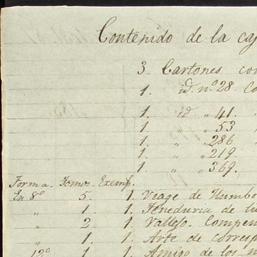 Contenido de la caj
3 Cartones con
1. id. nº 28. Co
1. id „ 41.
1. „ „ 53
1. „ „ 286
1. „ „ 219
1. „ „ 369.
Forma. Tomos. Exemp.
En 8º 5. 1. Viage de Humbo
„ 1. 1. Teneduria de li
„ 2. 1. Vallejo. Compen
„ 1. 1. Arte de corresp
12º 1. 1. Amigo de los n